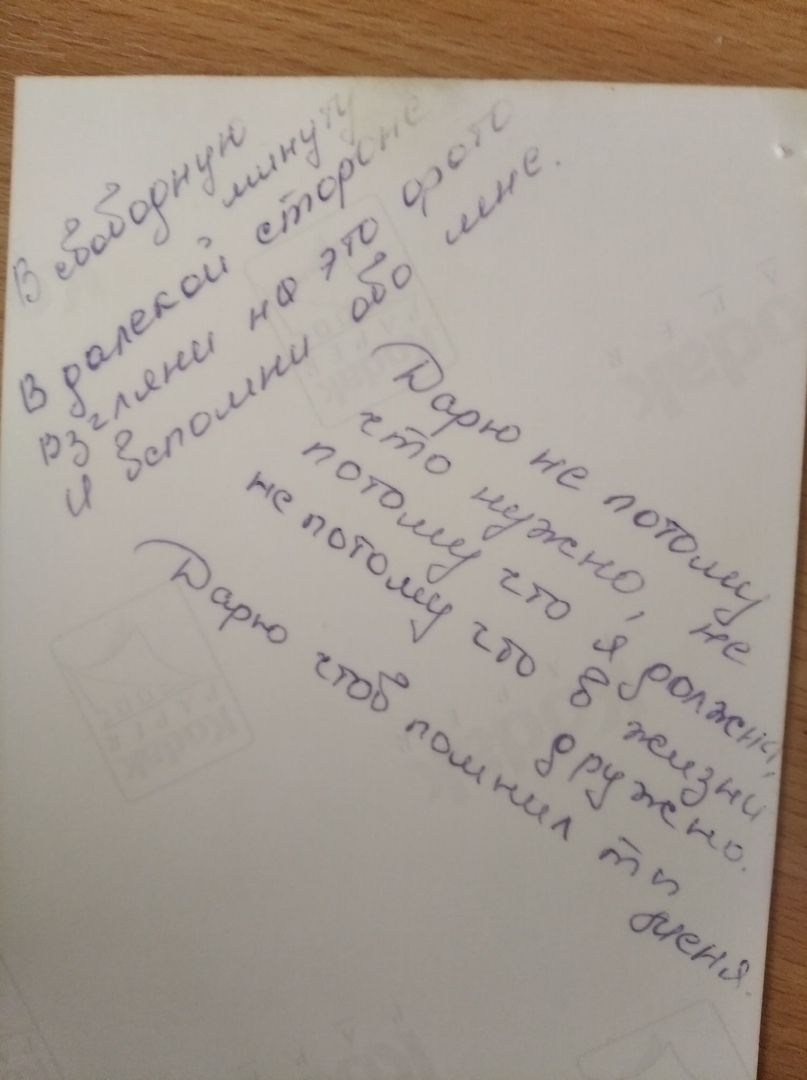 В свободную
минуту
В далекой стороне
Взгляни на это фото
И вспомни обо мне.
Дарю не потому
что нужно, не
потому что я должна,
не потому что в жизни
дружно.
Дарю чтоб помнил ты
меня.
Kodak
PAPER
Kodak
Kodak
PAPER